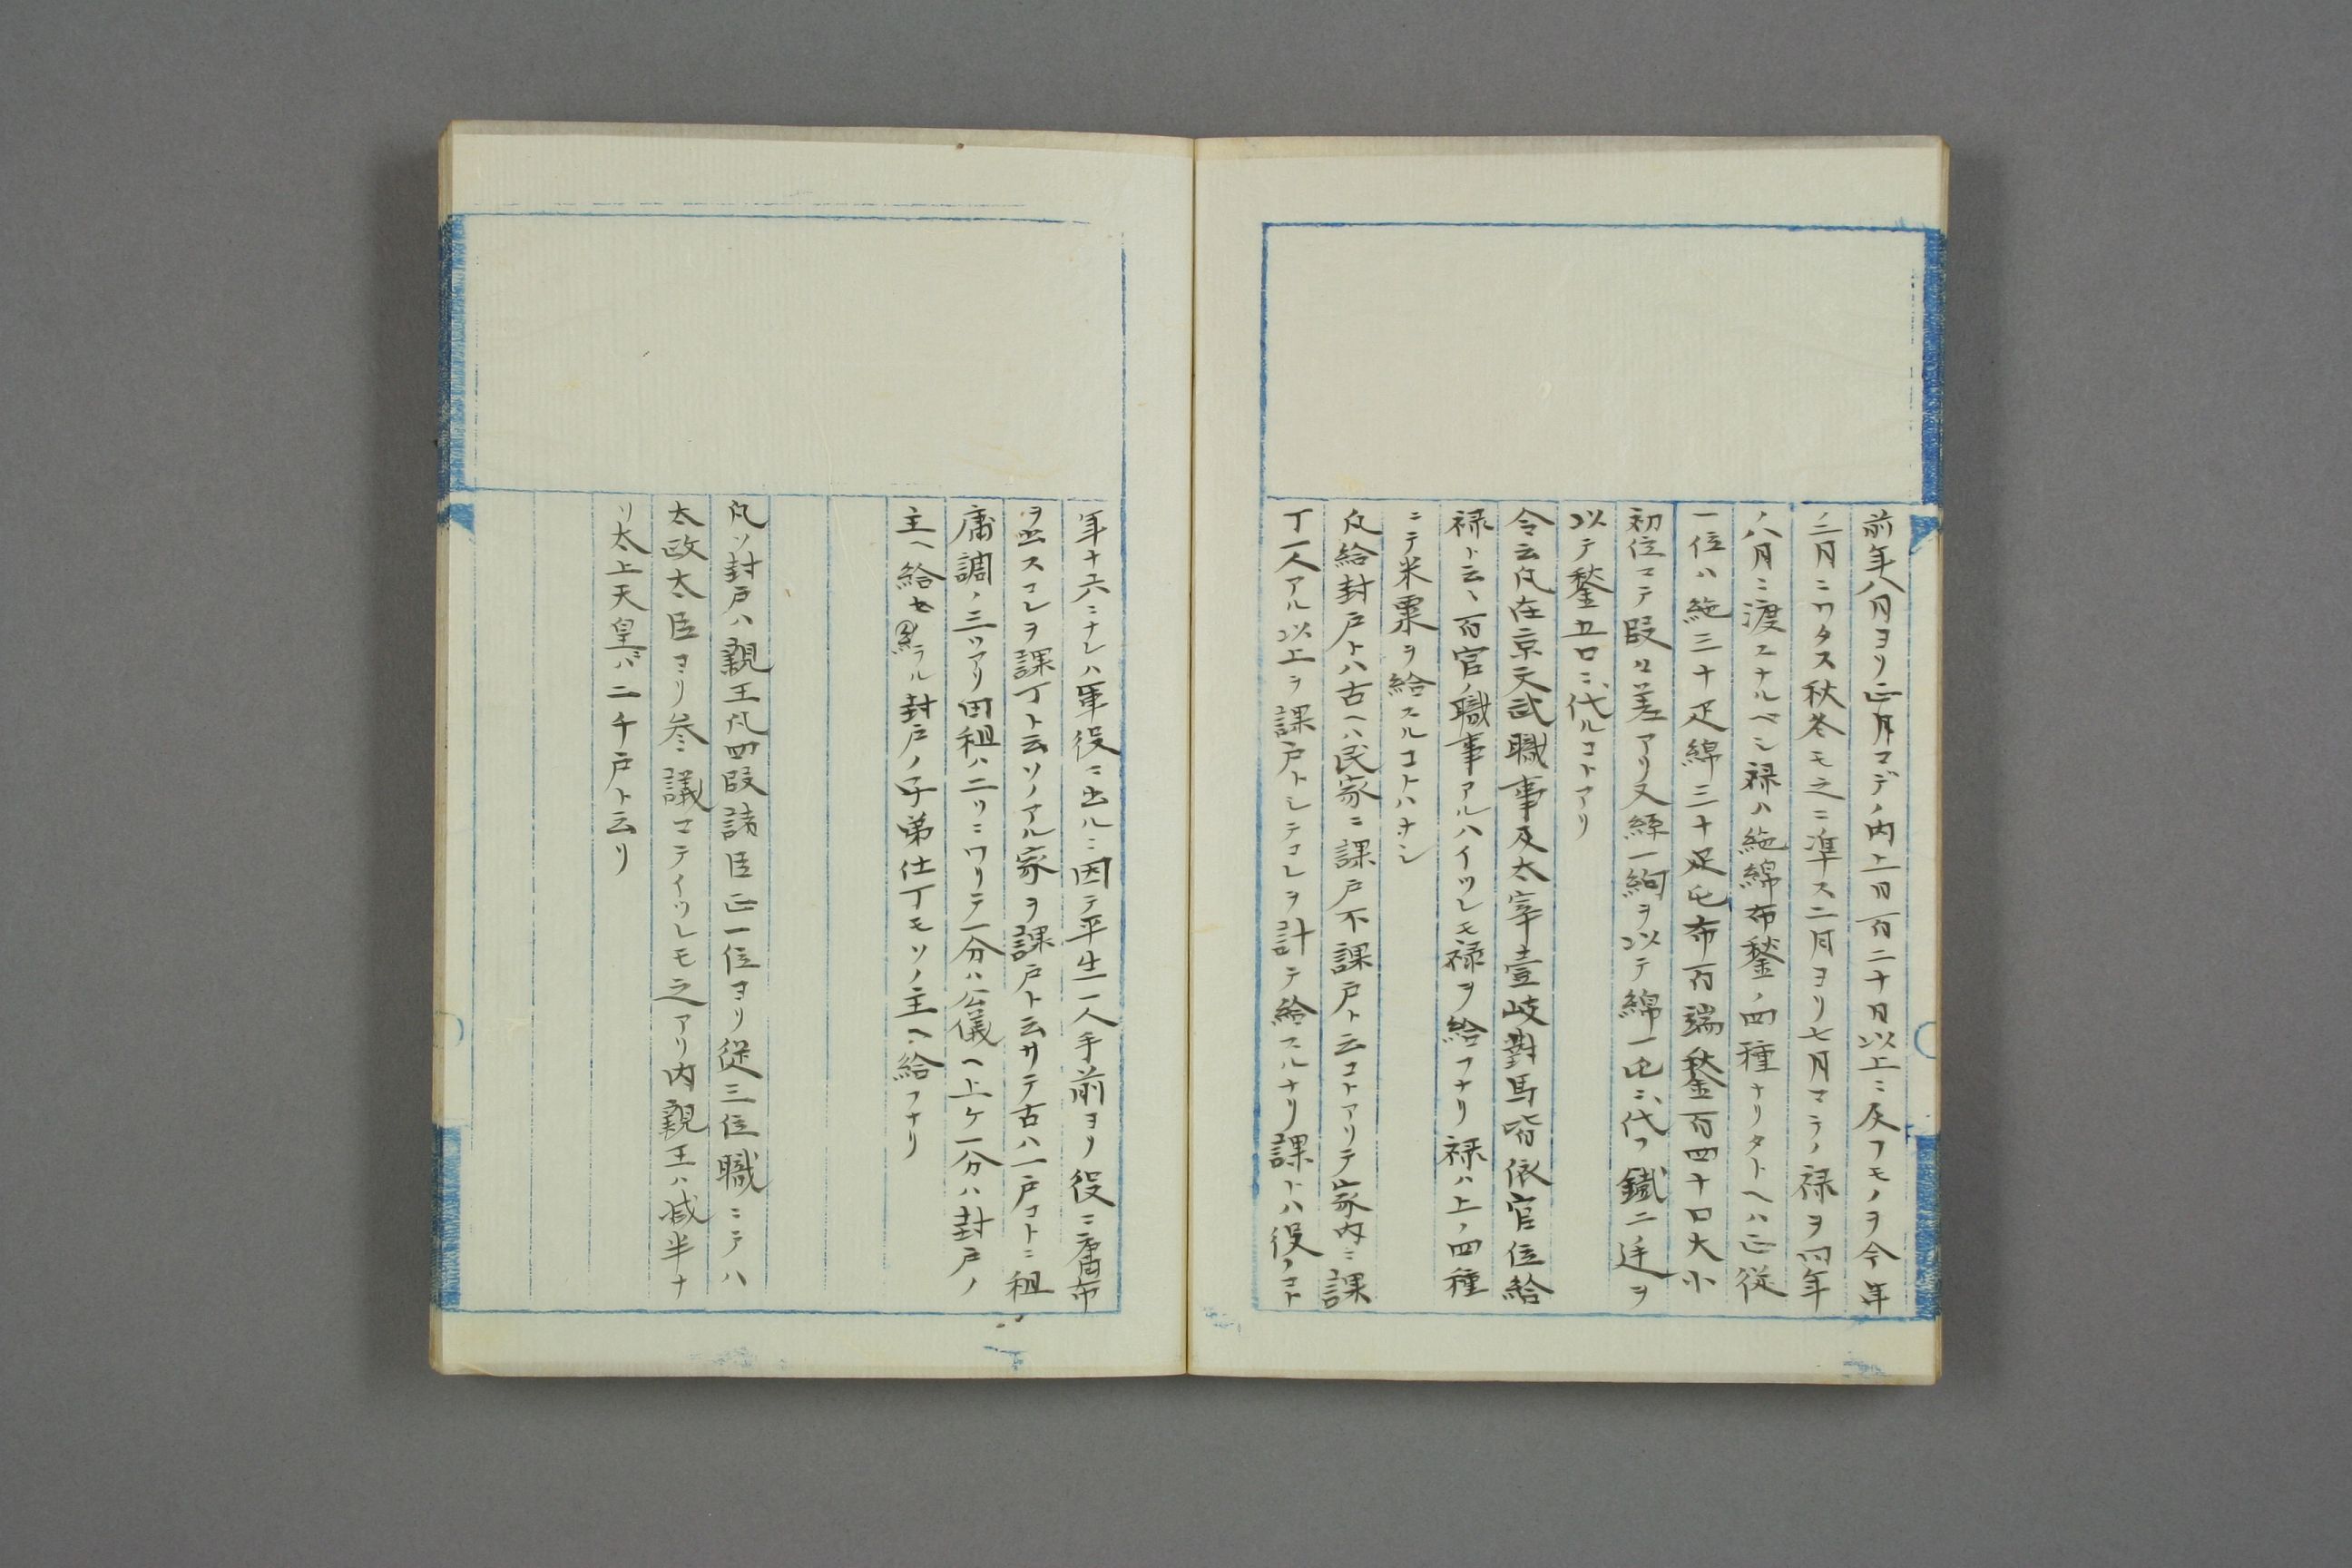 前年八月ヨリ正月マデノ内上日百二十日以上ニ及フモノヲ今年
ノ二月ニワタス秋冬モ之ニ準ス二月ヨリ七月マテノ禄ヲ同年
ノ八月ニ渡スナルベシ禄ハ絁綿布鍫ノ四種ナリタトヘハ正従
一位ハ絁三十疋綿三十屯布百端鍫百四十口大小
初位マテ段々差アリ又絲一絇ヲ以テ綿一屯ニ代フ鐵二廷ヲ
以テ鍫五口ニ代ルコトアリ
令云凡在京文武職事及太宰壹岐對馬皆依官位給
禄ト云ヽ百官ノ職事アルハイツレモ禄ヲ給フナリ禄ハ上ノ四種
ニテ米粟ヲ給スルコトハナシ
凡給封戸トハ古ヘハ民家ニ課戸不課戸ト云コトアリテ家内ニ課
丁一人アル以上ヲ課戸トシテコレヲ計テ給スルナリ課トハ役ノコト
年十六ニナレハ軍役ニ出ルニ因テ平生一人手前ヨリ役ニ庸布
ヲ出スコレヲ課丁ト云ソノアル家ヲ課戸ト云サテ古ハ一戸コトニ租
庸調ノ三ツアリ田租ハ二ツニワリテ一分ハ公儀ヘ上ケ一分ハ封戸ノ
主ヘ給セラル封戸ノ子弟仕丁モソノ主ヘ給フナリ
凡ソ封戸ハ親王凡四段諸臣正一位ヨリ従三位職ニテハ
太政太臣ヨリ参議マテイツレモ之アリ内親王ハ減半ナ
リ太上天皇ハ二千戸ト云リ